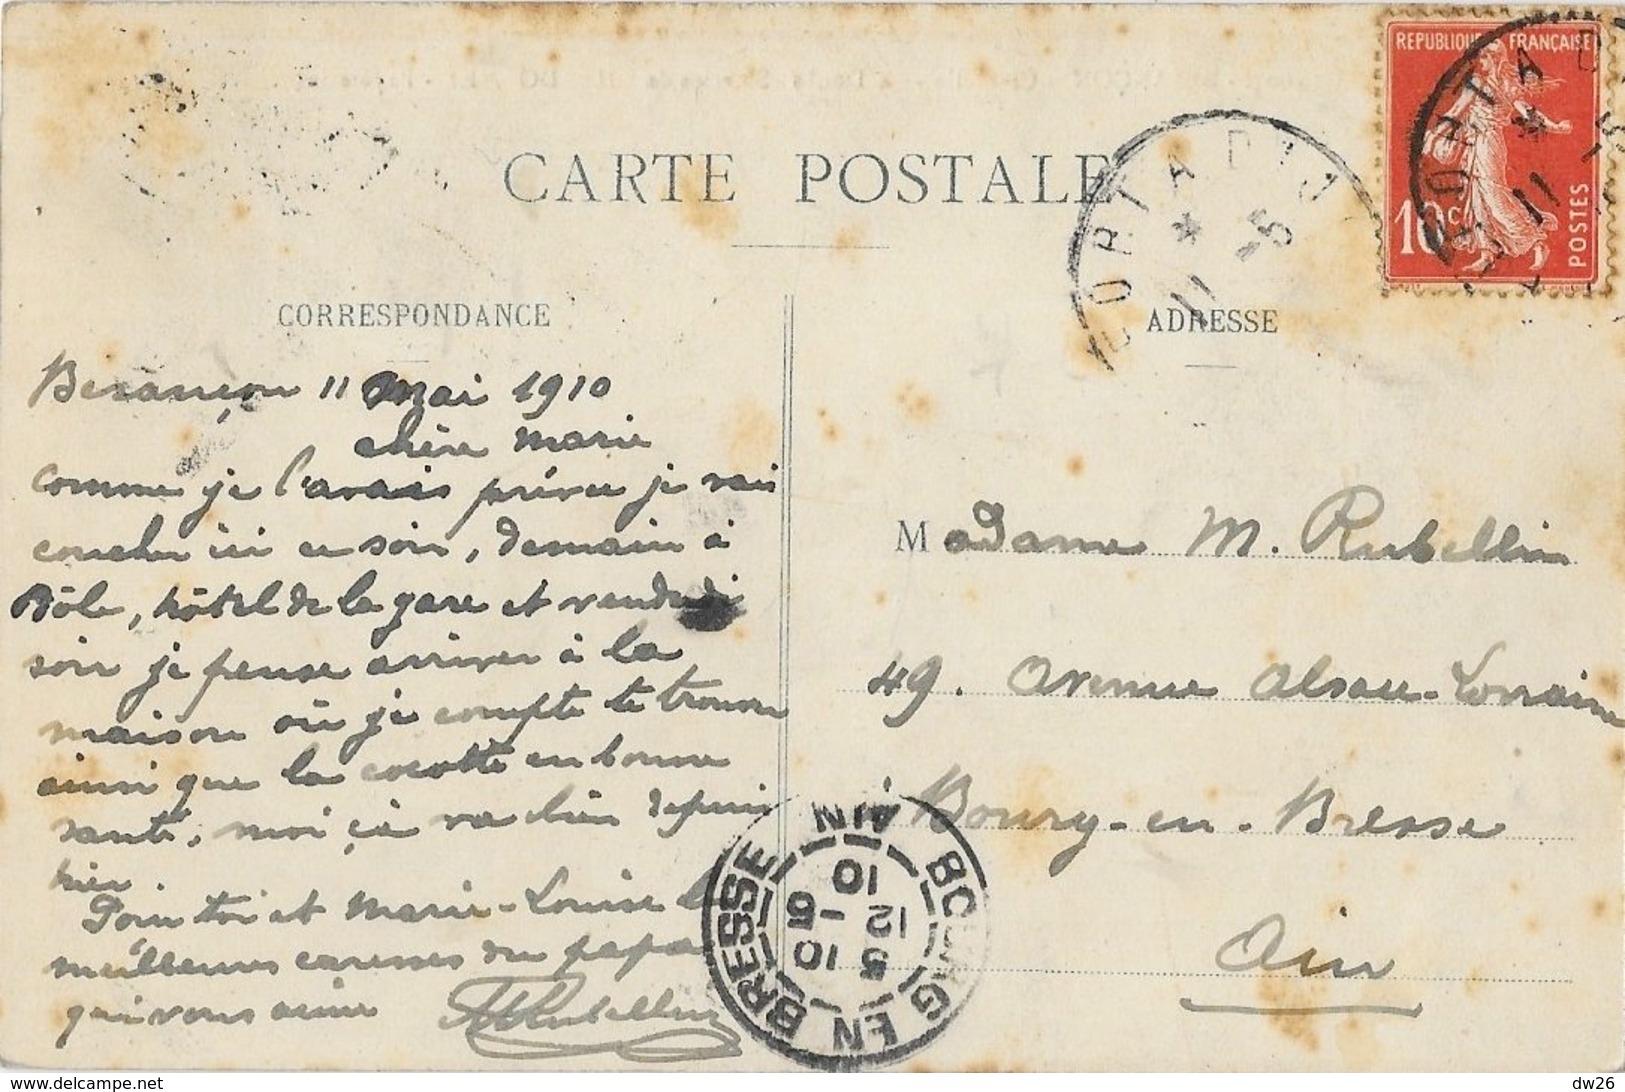 CARTE POSTALE
CORRESPONDANCE
Besançon 11 Mai 1910
chère Marie
comme je l'avais prévu je vais
coucher ici ce soir, demain à
Dôle, hôtel de la gare et vendredi
soir je pense arriver à la
maison où je compte te trouver
ainsi que la cocotte en bonne
santé, moi ça va bien depuis
hier
Pour toi et Marie-Louise les
meilleures caresses du papa
qui vous aime Rubellin
REPUBLIQUE FRANÇAISE
10c
POSTES
11 -5
ADRESSE
Madame M. Rubellin
49. Avenue Alsace-Lorraine
Bourg-en-Bresse
Ain
BOURG EN BRESSE AIN
10 -5
5 12 10
https://www.delcampe.net
dw26